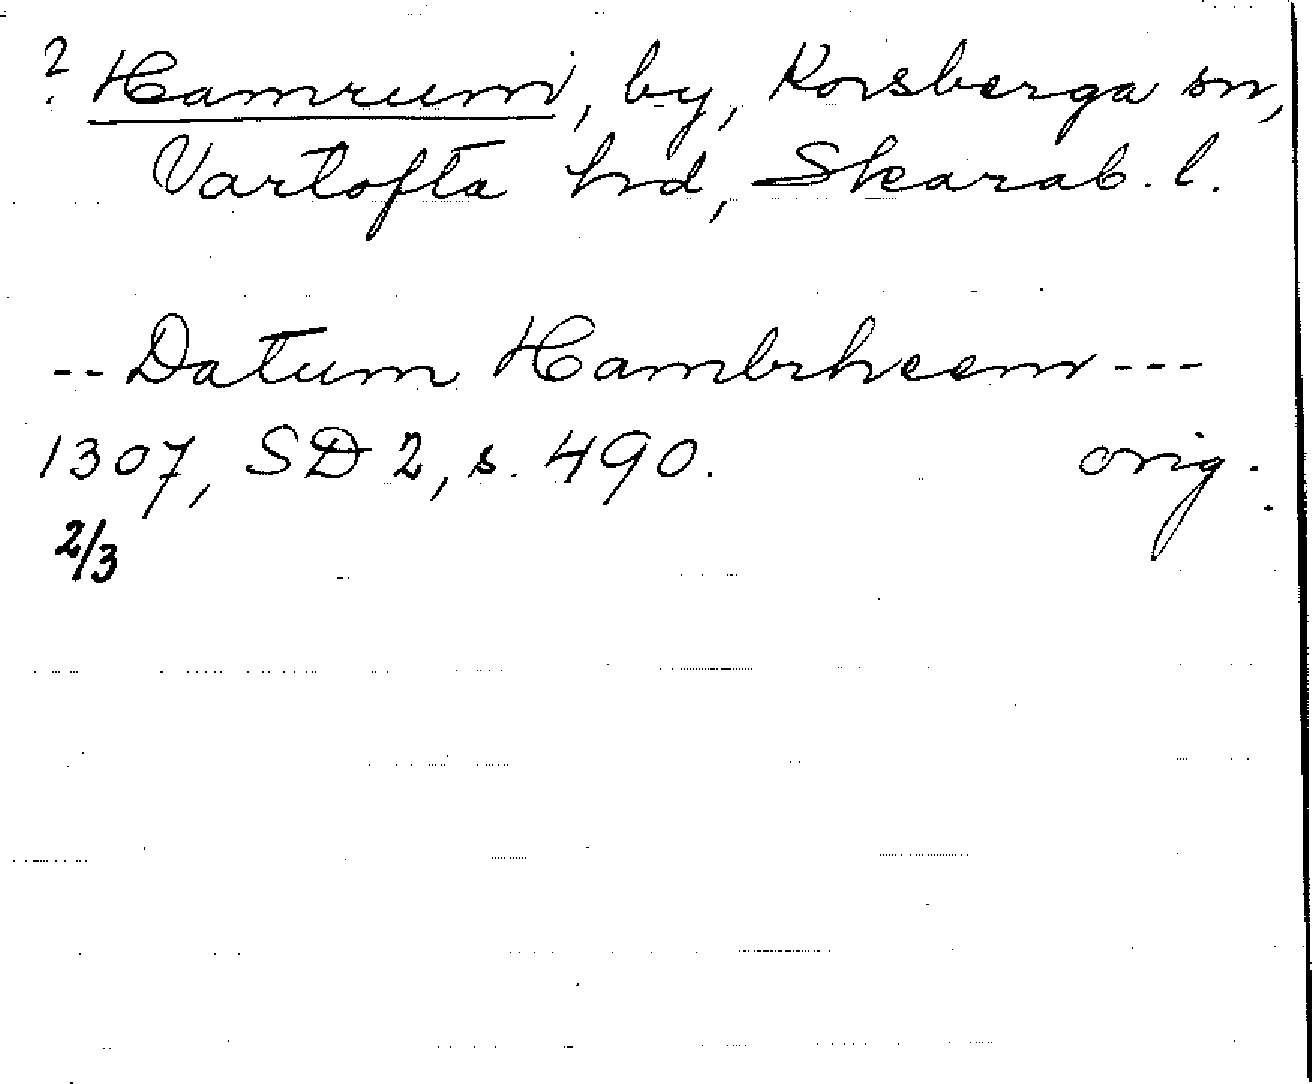 ? Hamrum, by, Korsberga sn,
Vartofta hrd, Skarab. l.
-- Datum Hambrheem ---
1307, SD 2, s. 490. orig.
2/3